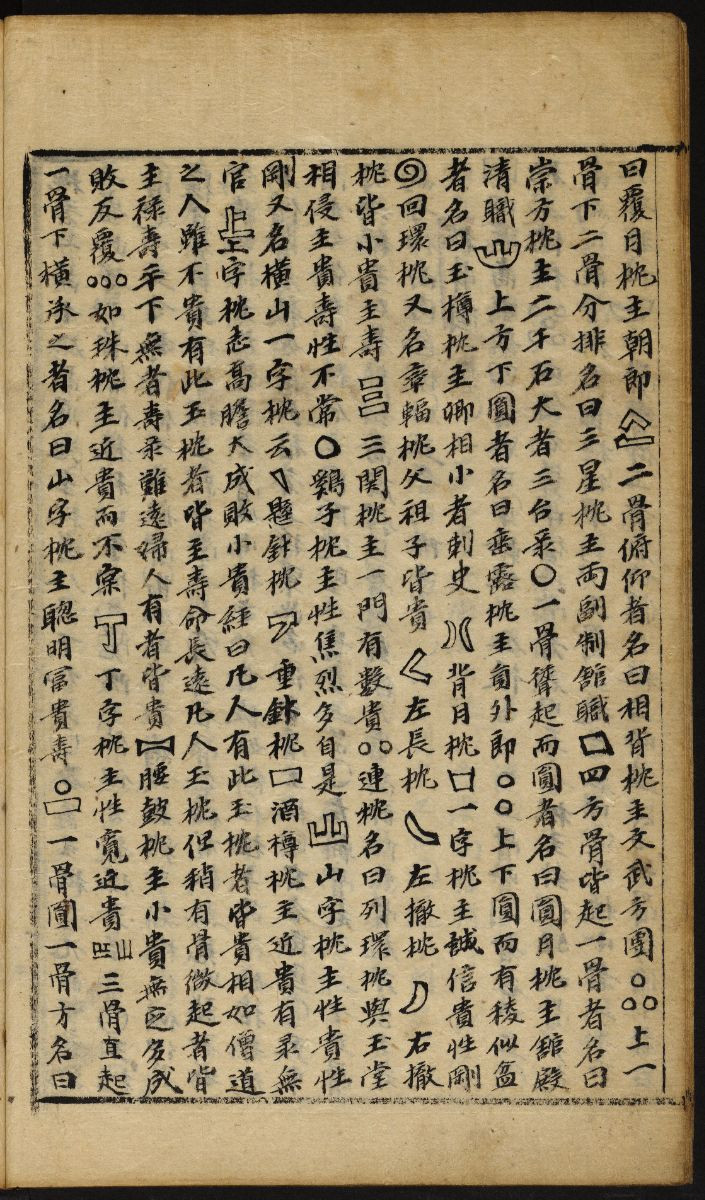 曰覆月枕主朝郎 二骨俯仰者名曰相背枕主文武方團 上一
骨下二骨分排名曰三星枕主兩副制舘職 四方骨皆起一骨者名曰
崇方枕主二千石大者三台彔 一骨聳起而圓者名曰圓月枕主舘殿
清職 上方下圓者名曰垂露枕主員外郎 上下圓而有稜似盃
者名曰玉樽枕主卿相小者刺史 背月枕 一字枕主誠信貴性剛
回環枕又名車輻枕父祖子皆貴 左長枕 左撤枕 右撤
枕皆小貴主壽 三関枕主一門有數貴 連枕名曰列環枕與玉堂
相侵主貴壽性不常 鷄子枕主性焦烈多自是 山字枕主性貴性
剛又名橫山一字枕云 懸針枕 垂針枕 酒樽枕主近貴有彔無
官 上字枕志高膽大成敗小貴経曰凡人有此玉枕者皆貴相如僧道
之人雖不貴有此玉枕者皆主壽命長遠凡人玉枕但稍有骨微起者皆
主祿壽平下無者壽彔難遠婦人有者皆貴 腰鼓枕主小貴無㝎多成
敗反覆 如珠枕主近貴而不宲 丁字枕主性寛近貴 三骨直起
一骨下橫承之者名曰山字枕主聰明冨貴壽 一骨圓一骨方名曰